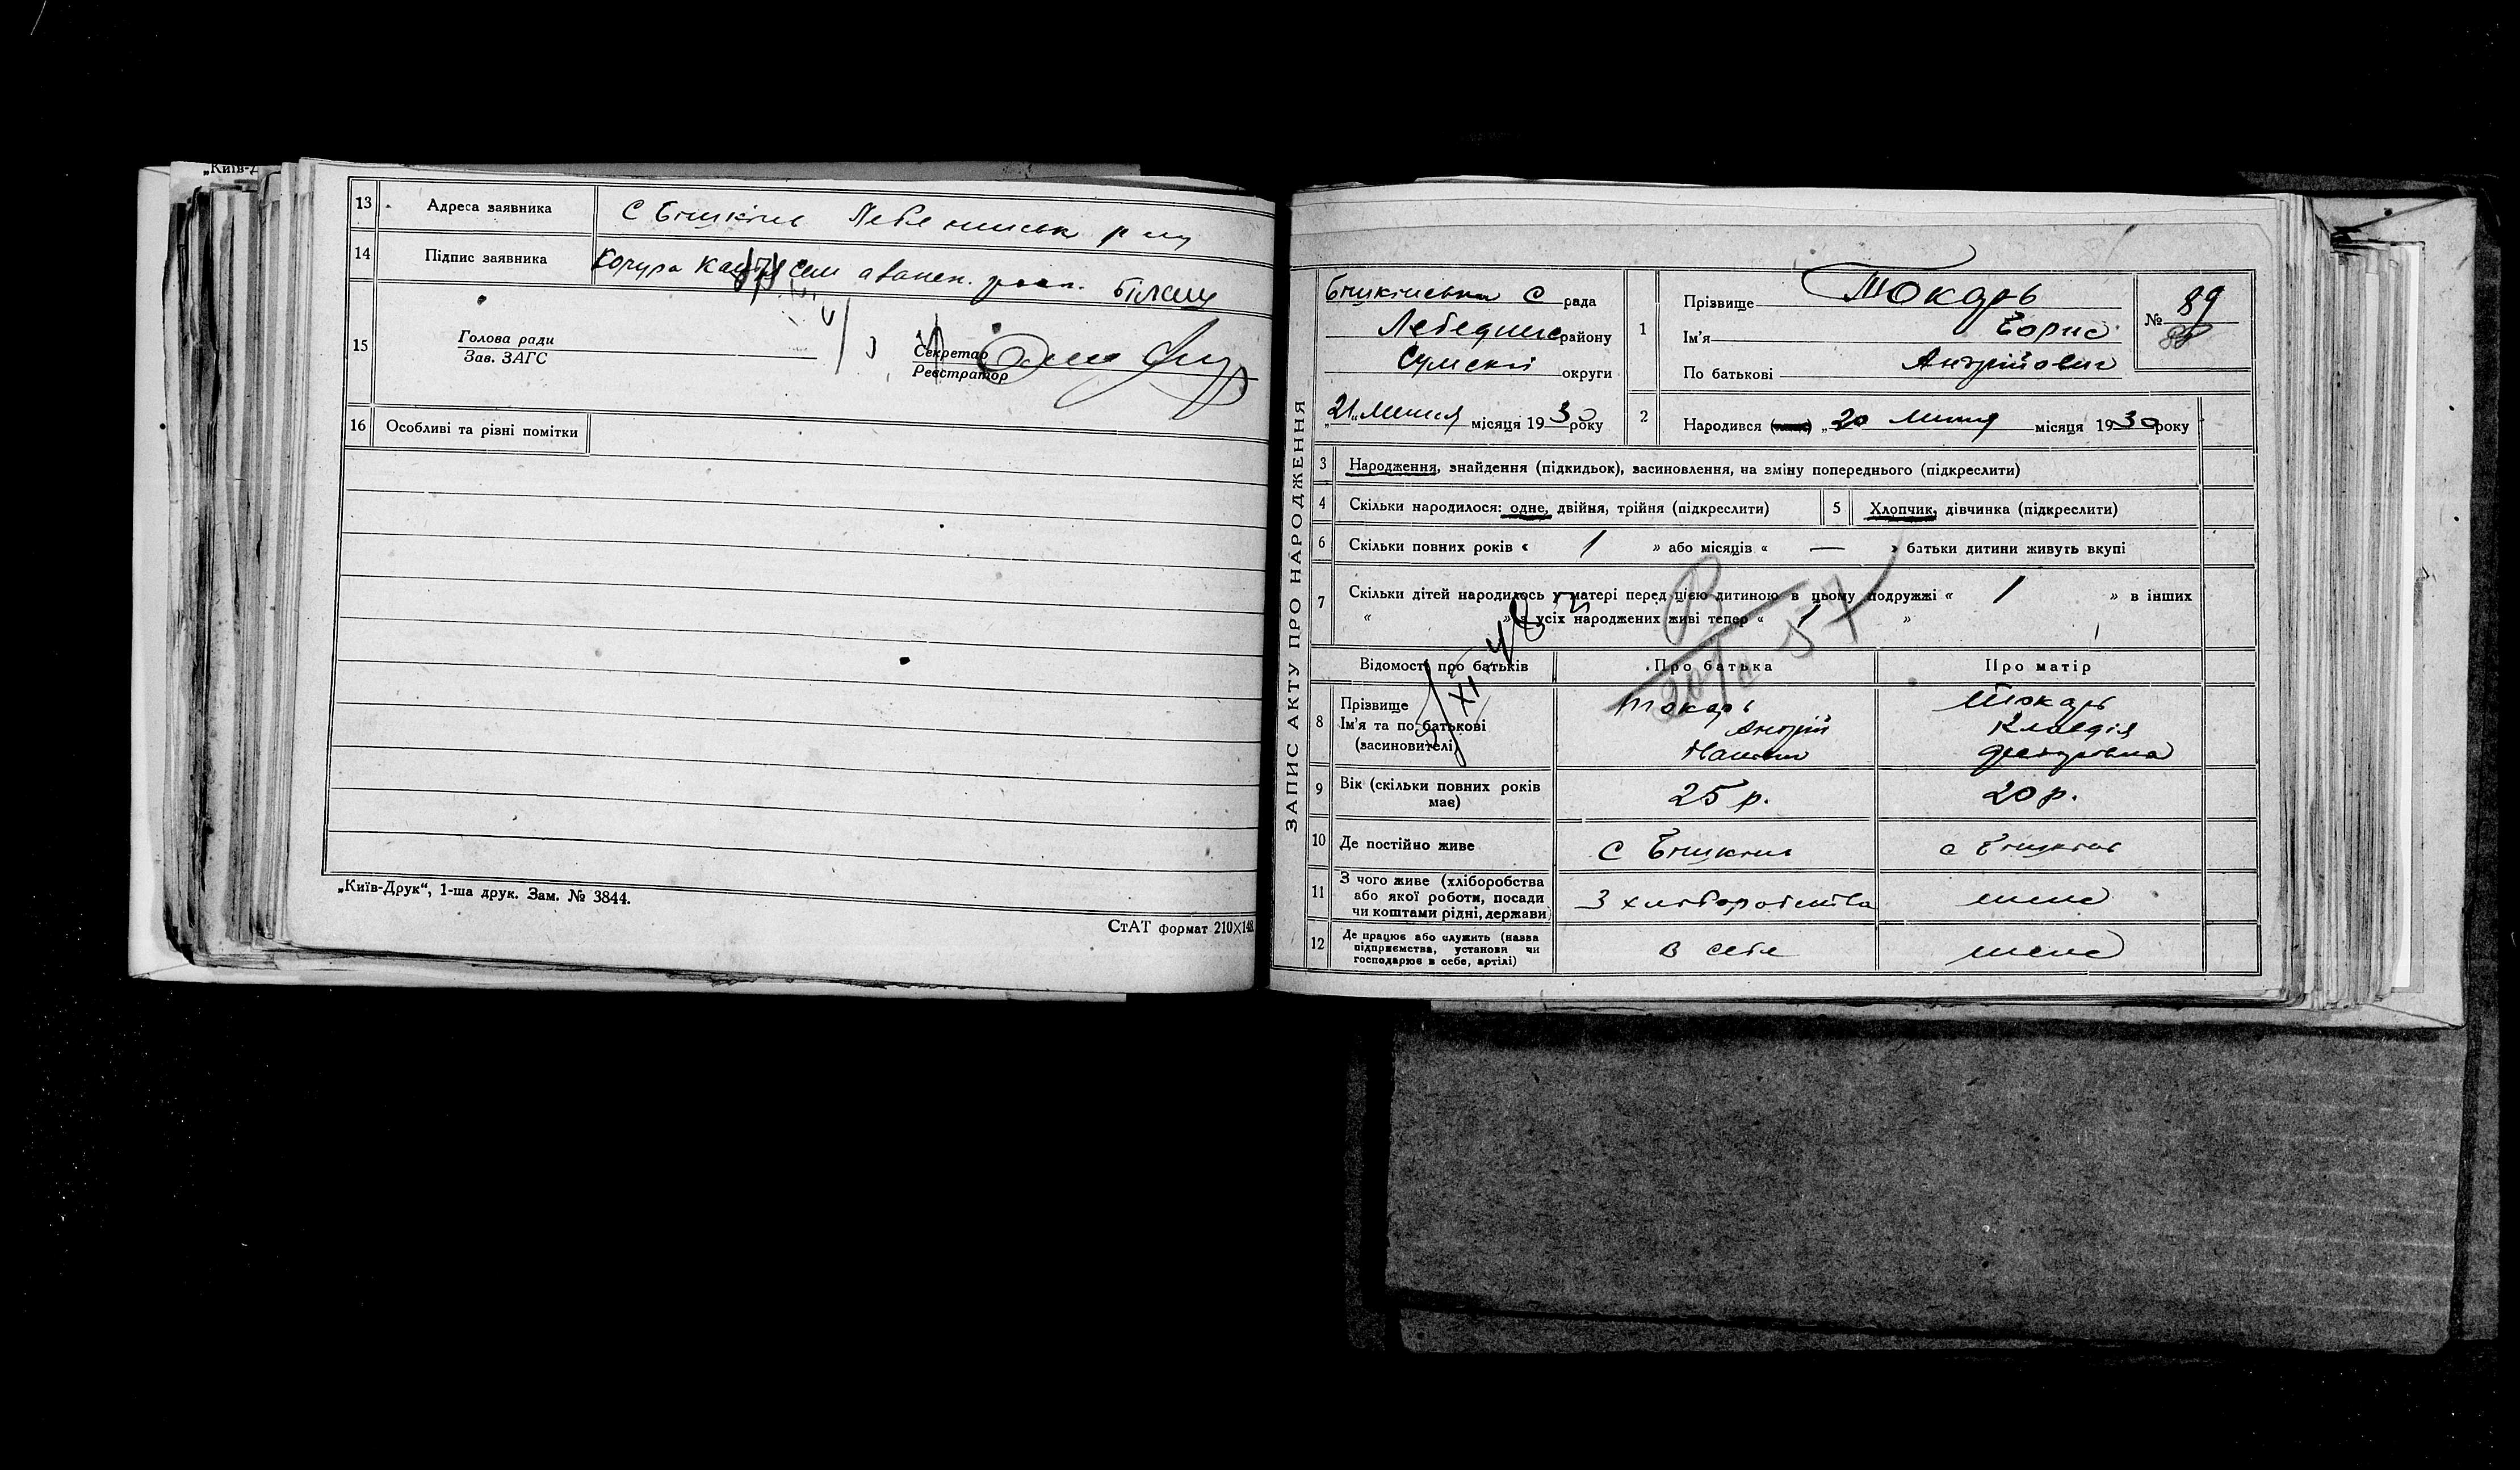 „Київ-Д
13 Адреса заявника С Бишкінь Лебединськ р
14 Підпис заявника Кочура
15 Голова ради
Зав. ЗАГС
Секретар
Реєстратор
16 Особливі та різні помітки
„Київ-Друк“, 1-ша друк. Зам. № 3844.
СтАТ формат 210×148
ЗАПИС АКТУ ПРО НАРОДЖЕННЯ
Бишкінська С рада
Лебединс району
Сумскої округи
„21„ Липня місяця 1930 року
1 Прізвище Токарь
Ім'я Борис
По батькові Андрійович
№ 89
88
2 Народився „20 Липня місяця 1930 року
3 Народження, знайдення (підкидьок), засиновлення, на зміну попереднього (підкреслити)
4 Скільки народилося: одне, двійня, трійня (підкреслити) 5 Хлопчик, дівчинка (підкреслити)
6 Скільки повних років « 1 » або місяців « — » батьки дитини живуть вкупі
7 Скільки дітей народилось у матері перед цією дитиною в цьому подружжі « 1 » в інших
« » з усіх народжених живі тепер « 1 »
Відомості про батьків Про батька Про матір
8 Прізвище Токарь Токарь
Ім'я та по батькові Андрій Клавдія
(засиновителі)
9 Вік (скільки повних років має) 25 р. 20 р.
10 Де постійно живе С Бишкінь с Бишкінь
11 З чого живе (хліборобства
або якої роботи, посади
чи коштами рідні, держави) З хліборобства теж
12 Де працює або служить (назва
підприємства, установи чи
господарює в себе, артілі) в себе теж